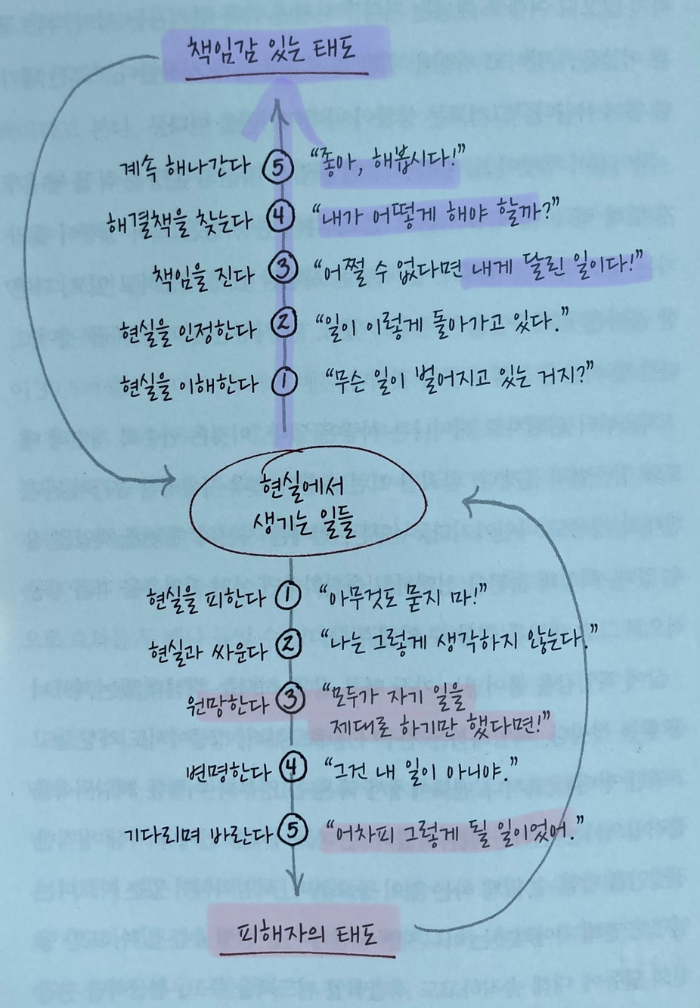 책임감 있는 태도
계속 해나간다 ⑤ “좋아, 해봅시다!”
해결책을 찾는다 ④ “내가 어떻게 해야 할까?”
책임을 진다 ③ “어쩔 수 없다면 내게 달린 일이다!”
현실을 인정한다 ② “일이 이렇게 돌아가고 있다.”
현실을 이해한다 ① “무슨 일이 벌어지고 있는 거지?”
현실에서
생기는 일들
현실을 피한다 ① “아무것도 묻지 마!”
현실과 싸운다 ② “나는 그렇게 생각하지 않는다.”
원망한다 ③ “모두가 자기 일을
제대로 하기만 했다면!”
변명한다 ④ “그건 내 일이 아니야.”
기다리며 바란다 ⑤ “어차피 그렇게 될 일이었어.”
피해자의 태도